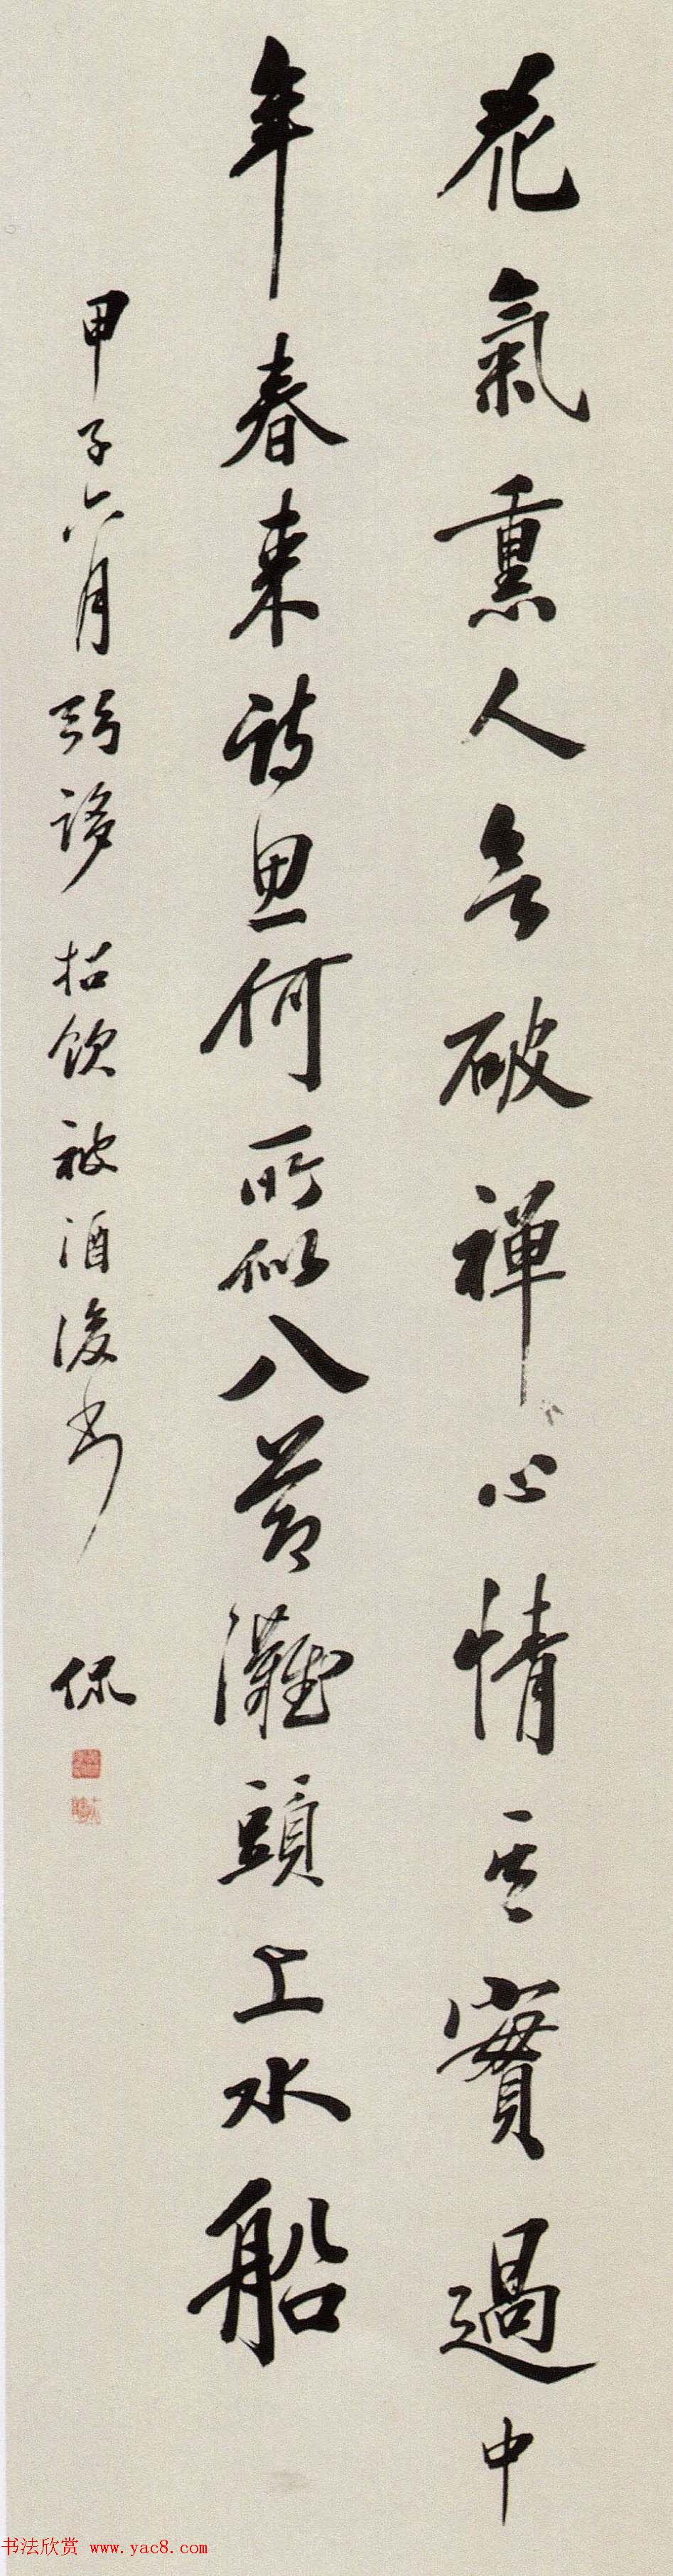 花氣熏人欲破禪心情其實過中
年春来詩思何所似八節灘頭上水船
甲子六月招飲被酒後書 侃
书法欣赏 www.yac8.com